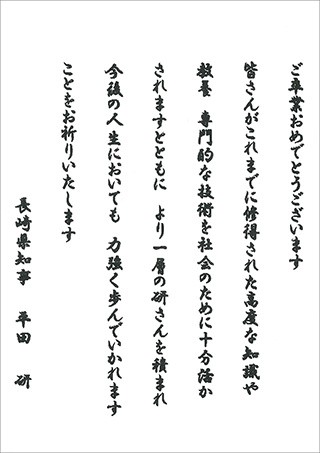 ご卒業おめでとうございます
皆さんがこれまでに修得された高度な知識や
教養　専門的な技術を社会のために十分活か
されますとともに　より一層の研さんを積まれ
今後の人生においても　力強く歩んでいかれます
ことをお祈りいたします
長崎県知事　平田　研